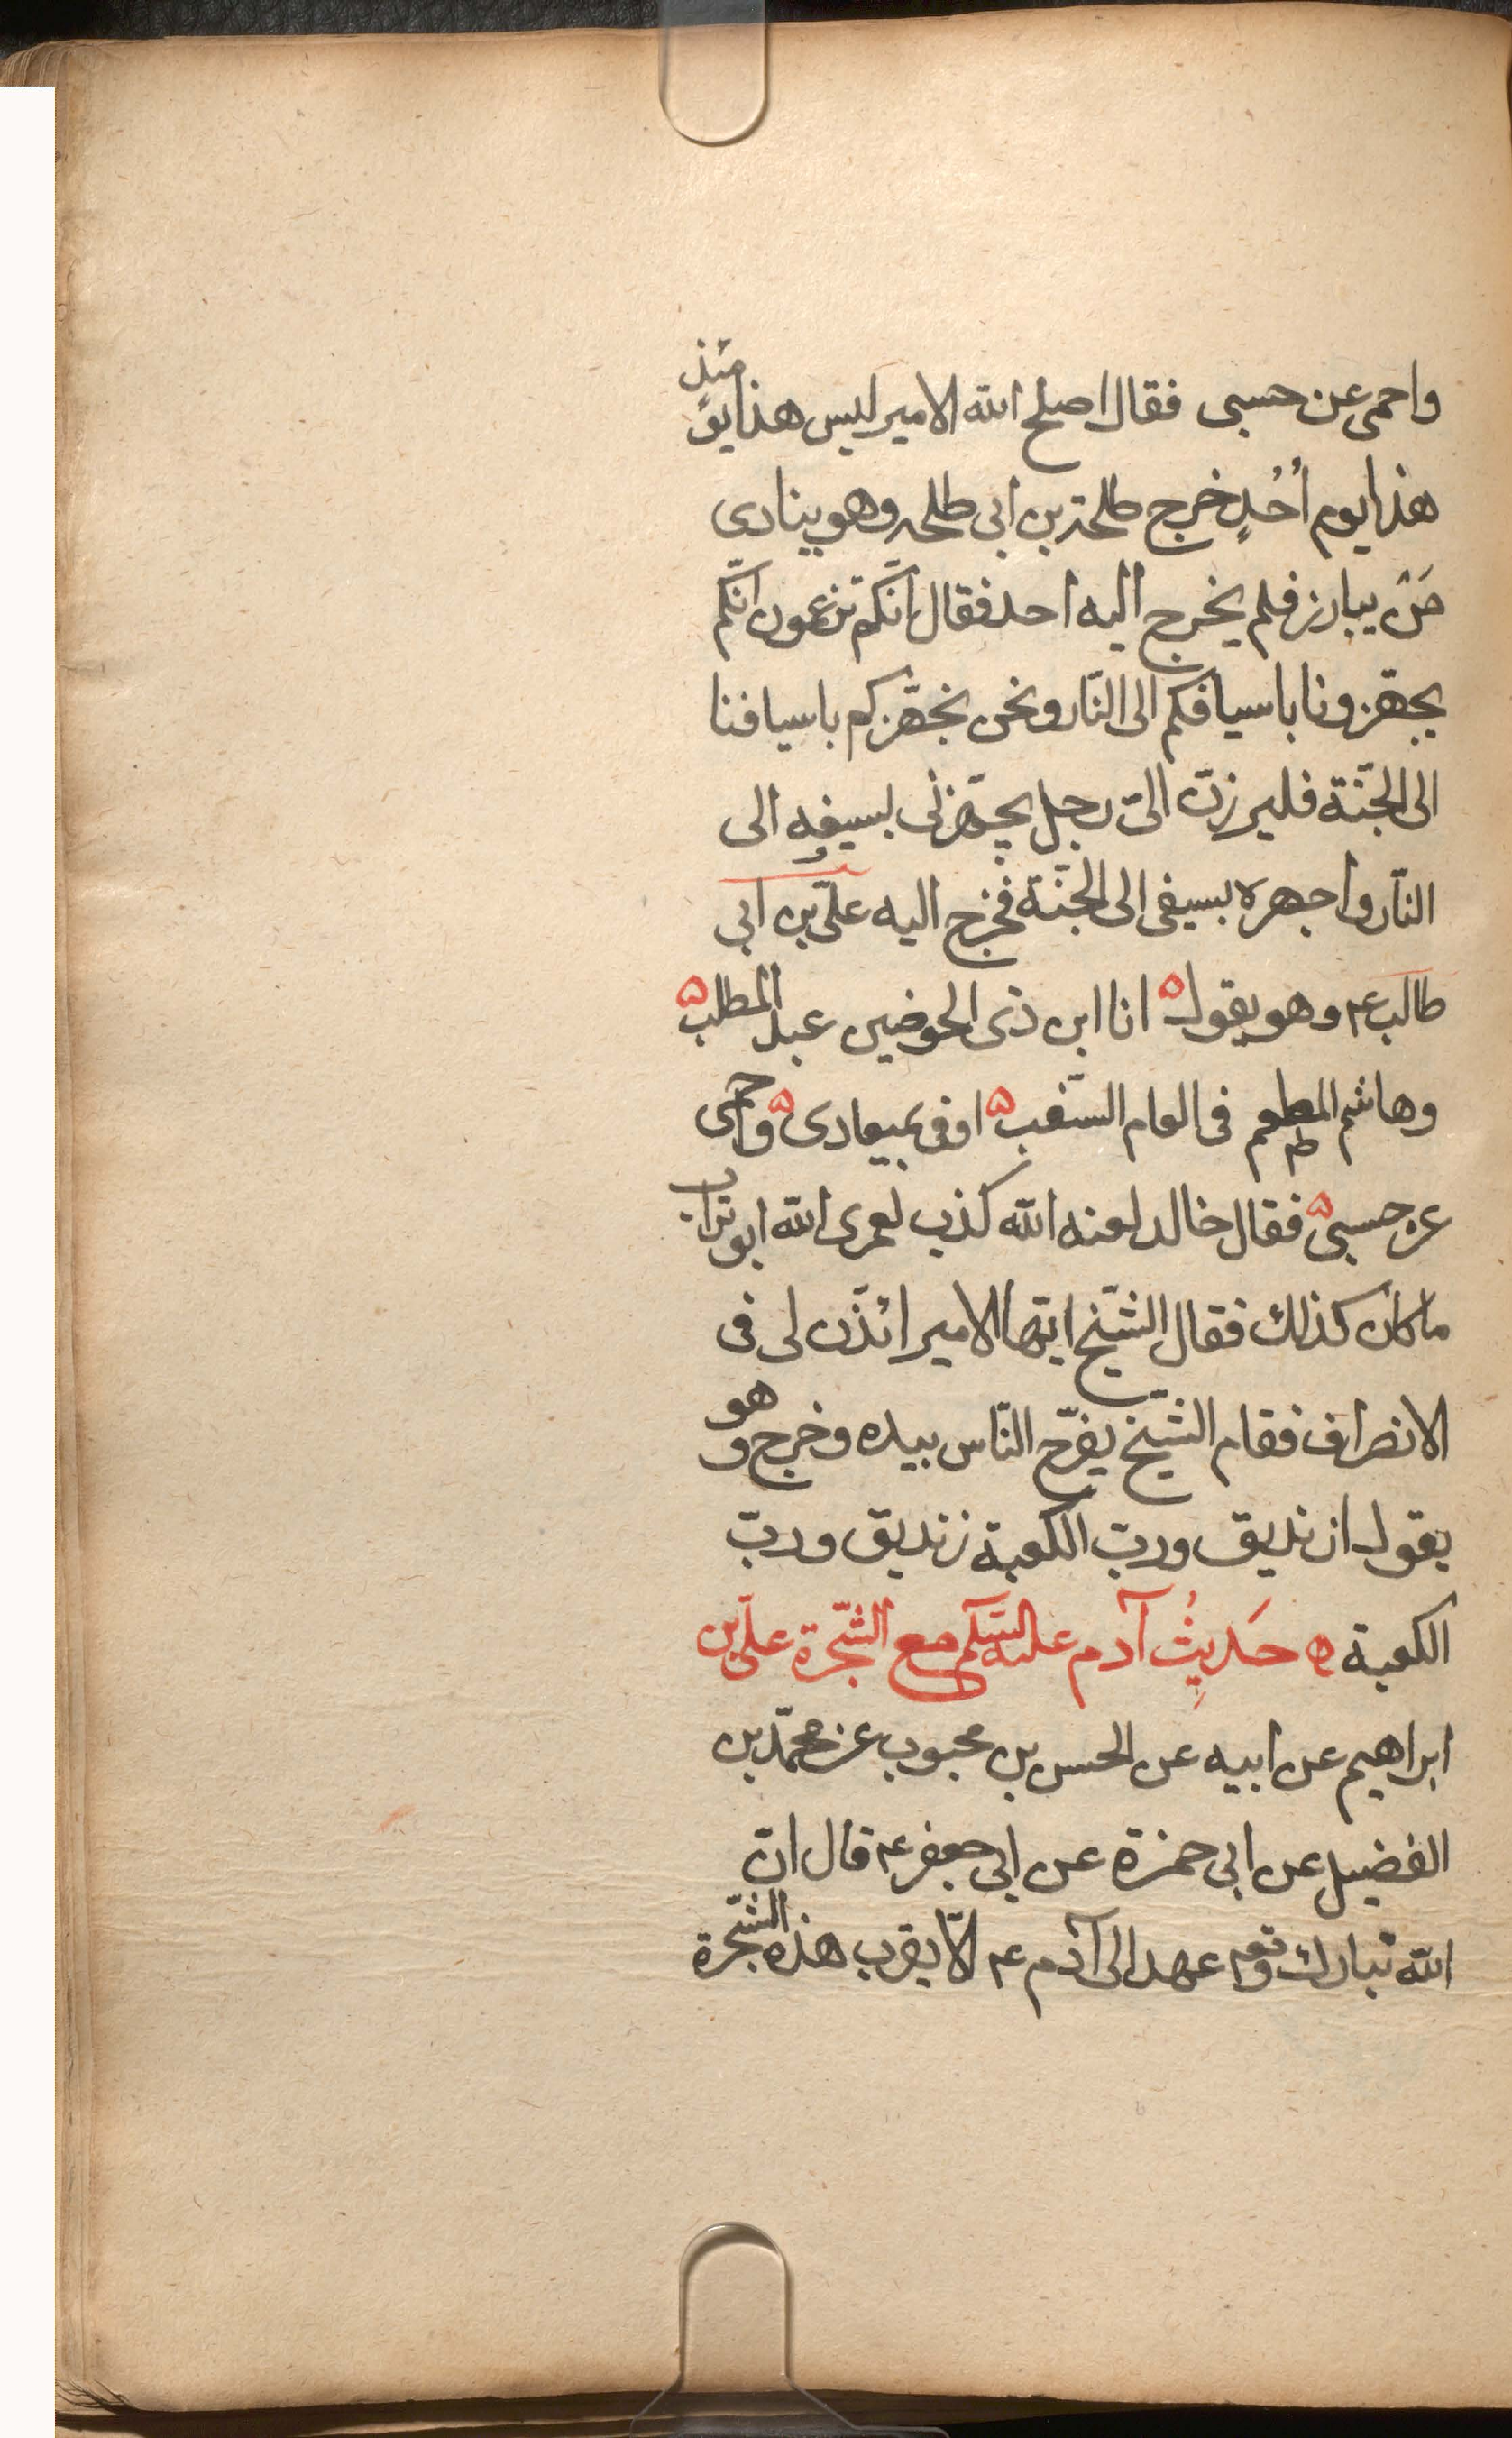 واحمی عن حسبی فقال اصلح الله الامیر لیس هذا یومئذٍ
هذا یوم اُحُدٍ خرج طلحة بن ابی طلحه وهو ینادی
مَنْ یبارز فلم یخرج الیه احد فقال انّکم تزعمون انّکم
یجهّزونا باسیافکم الی النّار ونحن نجهّزکم باسیافنا
الی الجنّة فلیبرزنّ الیّ رجل یجهّزنی بسیفه الی
النّار واجهزه بسیفی الی الجنّة فخرج الیه علیّ بن ابی
طالب ع وهو یقول ه انا ابن ذی الحوضین عبد المطلب ه
وهاشم المطعم فی العام السّغب ه اوفی بمیعادی ه واحمی
عن حسبی ه فقال خالد لعنه الله کذب لعمری الله ابوتراب
ما کان کذلک فقال الشّیخ ایّها الامیر ائذن لی فی
الانصراف فقام الشّیخ یفرّج النّاس بیده وخرج وهو
یقول زندیق وربّ الکعبة زندیق وربّ
الکعبة ه حَدِیثُ آدم علیه السّلم مع الشّجرة علیّ بن
ابراهیم عن ابیه عن الحسن بن محبوب عن محمّد بن
الفضیل عن ابی حمزة عن ابی جعفر ع قال انّ
الله تبارک وتع عهد الی آدم ع الّا یقرب هذه الشّجرة